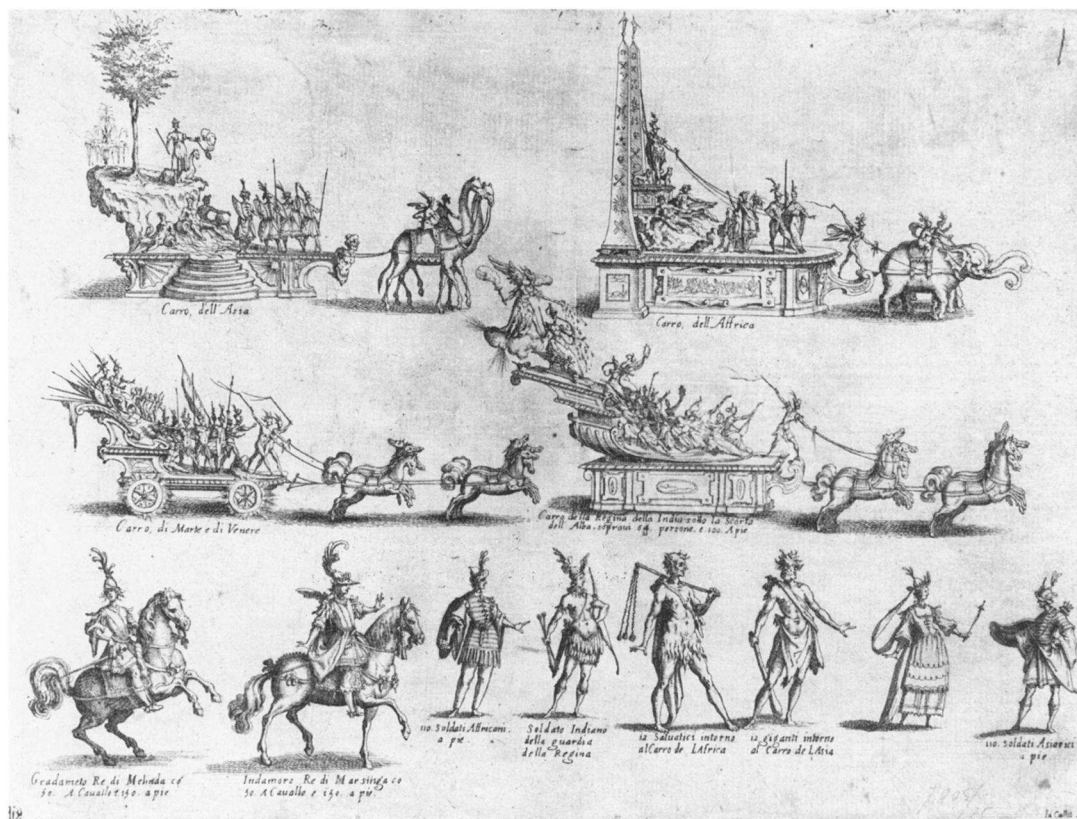 Carro, dell'Asia
Carro, dell'Affrica
Carro, di Marte e di Venere
Carro della Regina della India sotto la Scorta
dell'Alba, sopravi 64 persone, e 100 A pie
Gradameto Re di Melinda cō
50. A Cavallo e 150. a pie
Indamoro Re di Marsinga co
50. A Cavallo e 150. a pie.
110. Soldati Affricani
a pie
Soldato Indiano
della guardia
della Regina
12 Salvatici intorno
al Carro de L'Africa
12 giganti intorno
al Carro de L'Asia
110. Soldati Asiatici
a pie